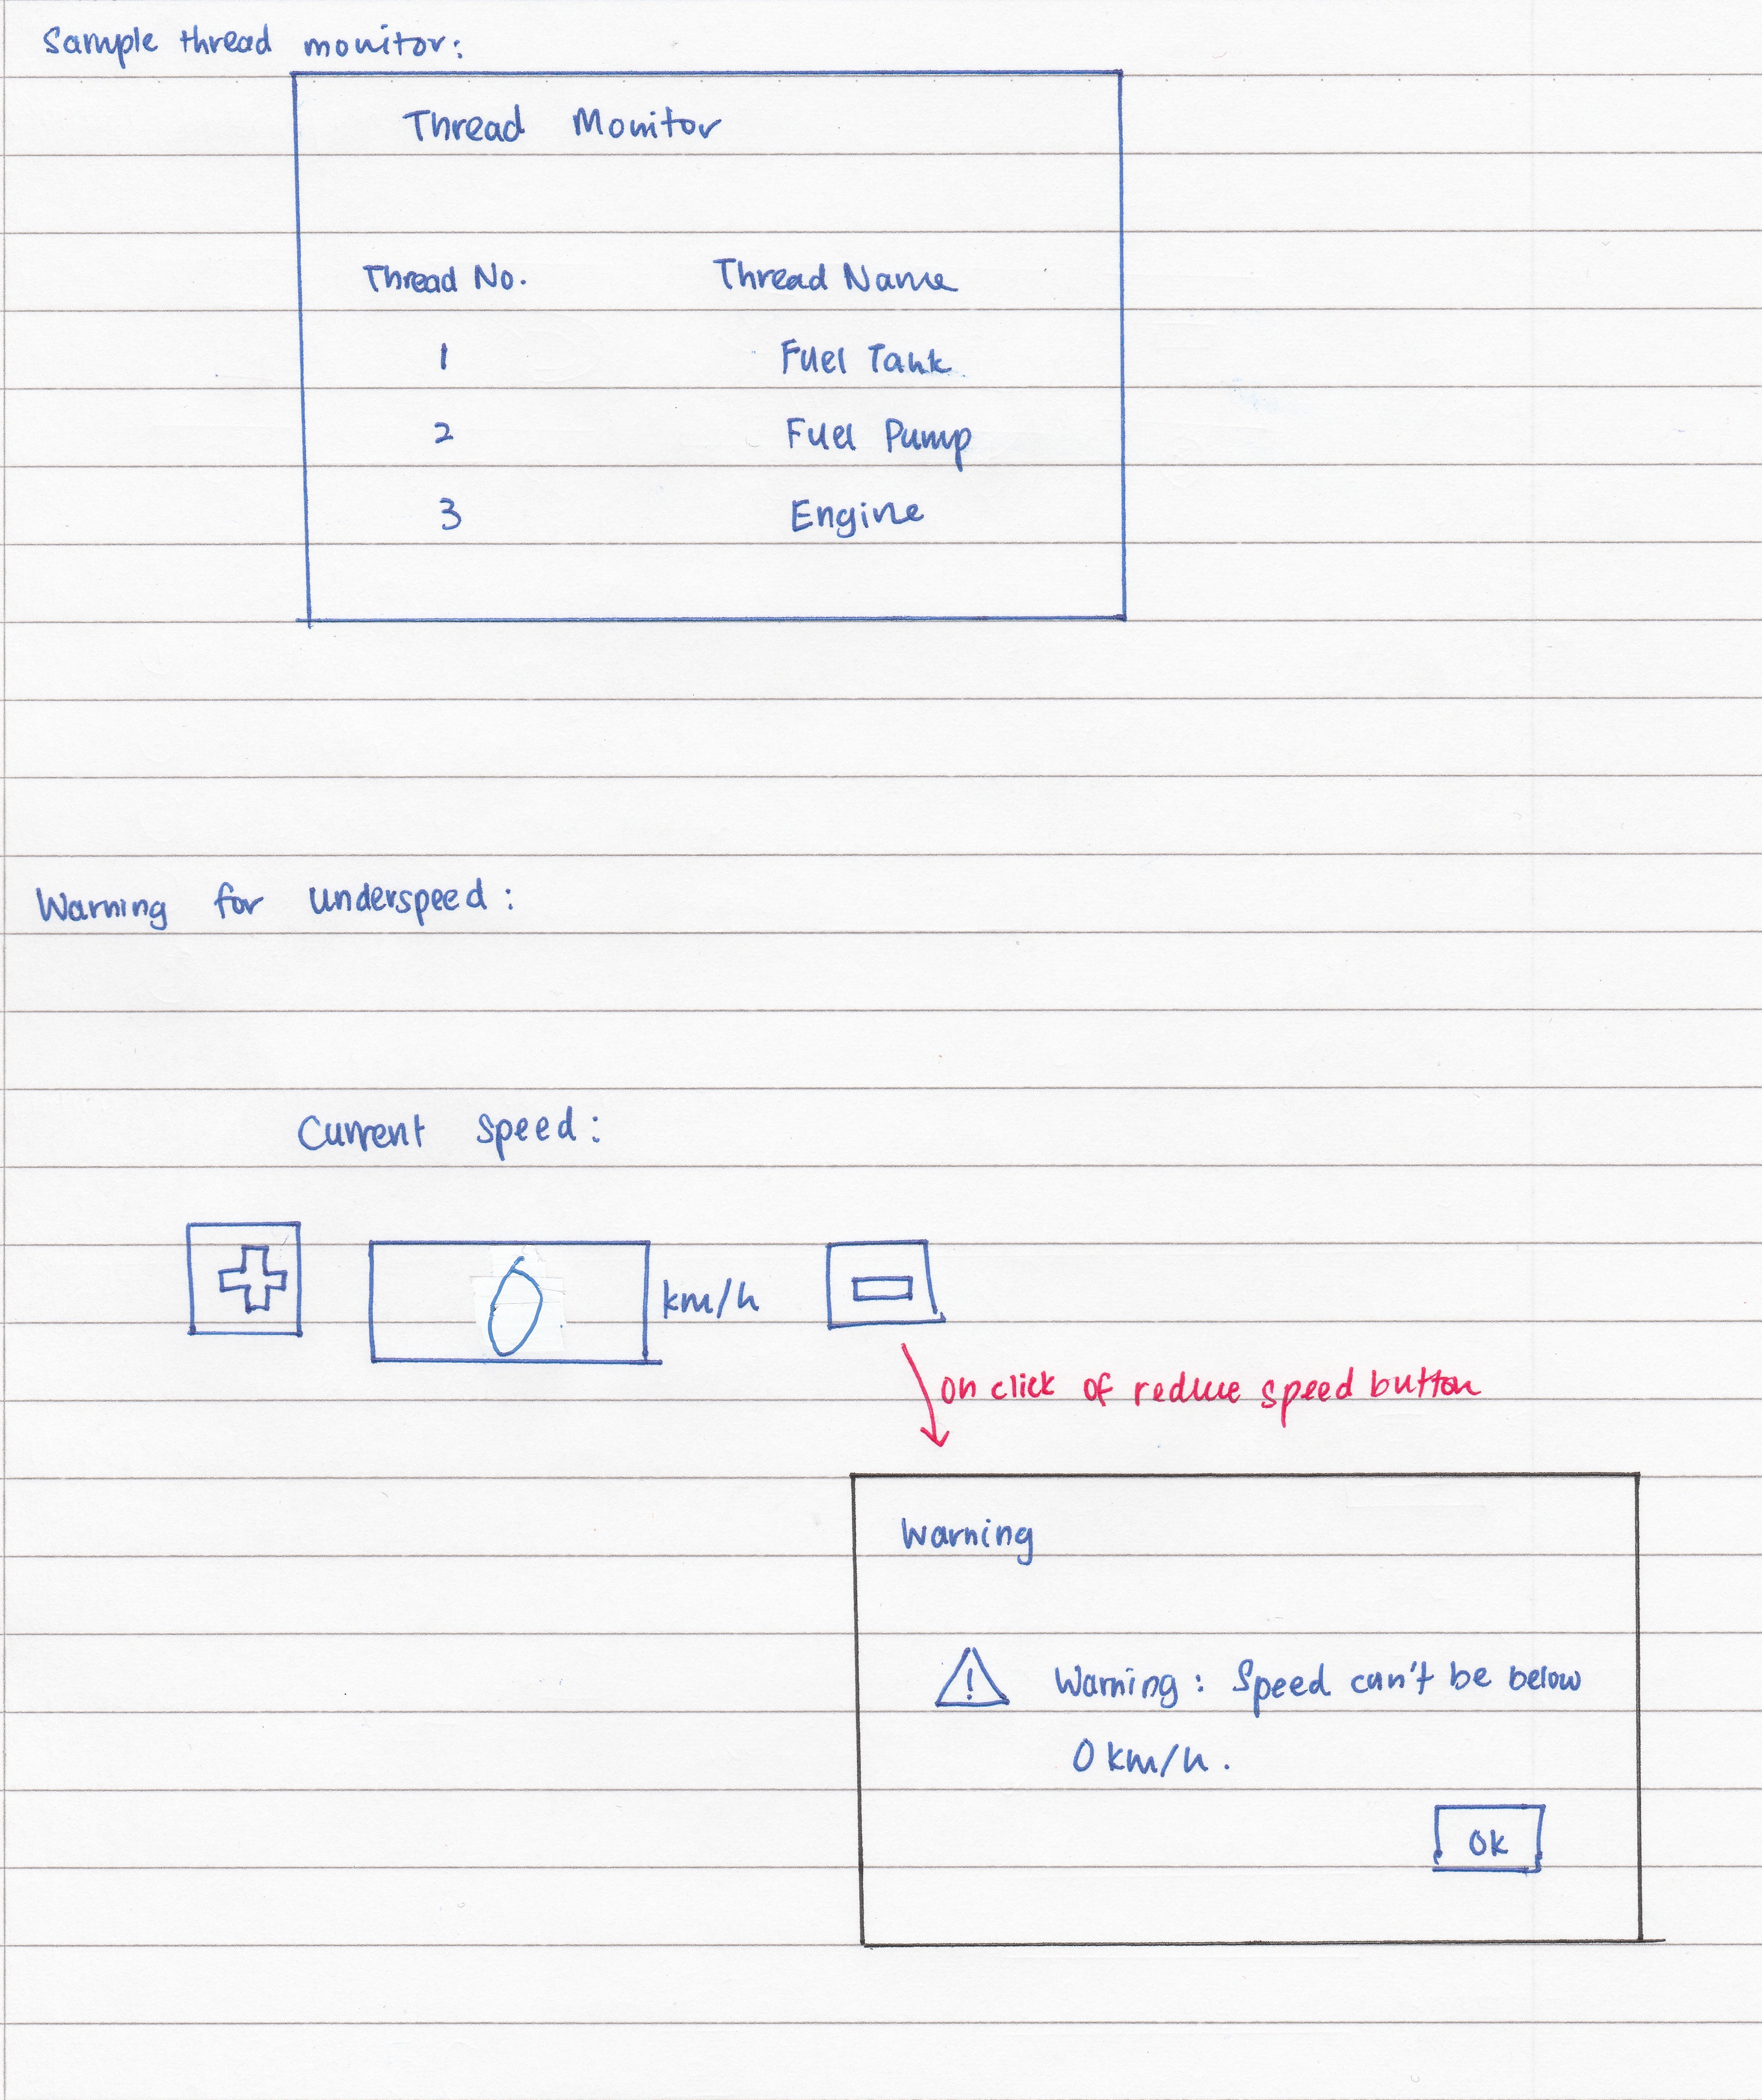 Sample thread monitor:
Thread Monitor
Thread No. Thread Name
1 Fuel Tank
2 Fuel Pump
3 Engine
Warning for underspeed:
Current speed:
0 km/h
on click of reduce speed button
Warning
! Warning: Speed can't be below
0 km/h.
Ok